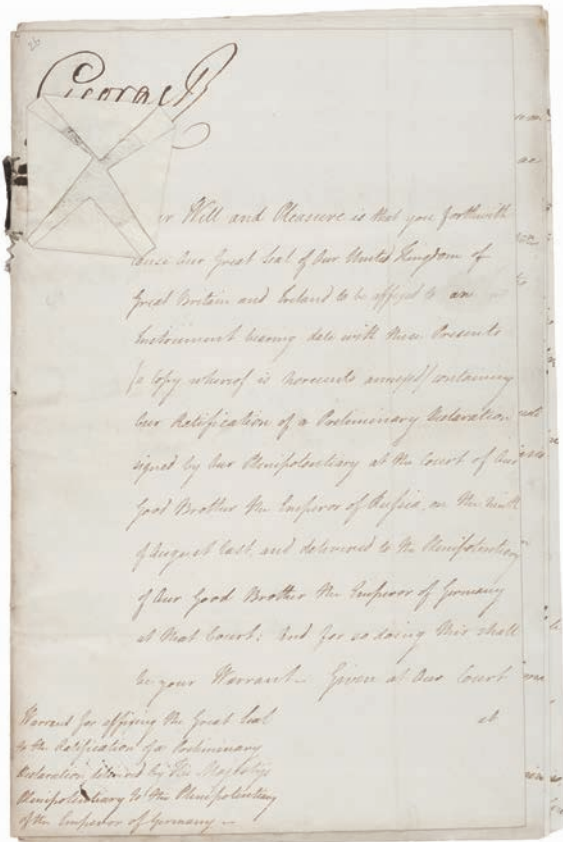 26
George R
Our Will and Pleasure is that you forthwith
cause Our Great Seal of Our United Kingdom of
Great Britain and Ireland to be affixed to an
Instrument bearing date with these Presents
(a Copy whereof is hereunto annexed) containing
Our Ratification of a Preliminary Declaration
signed by Our Plenipotentiary at the Court of Our
Good Brother the Emperor of Russia, on the ninth
of August last, and delivered to the Plenipotentiary
of Our Good Brother the Emperor of Germany
at that Court: And for so doing this shall
be your Warrant. Given at Our Court
at
Warrant for affixing the Great Seal
to the Ratification of a Preliminary
Declaration delivered by His Majesty's
Plenipotentiary to the Plenipotentiary
of the Emperor of Germany